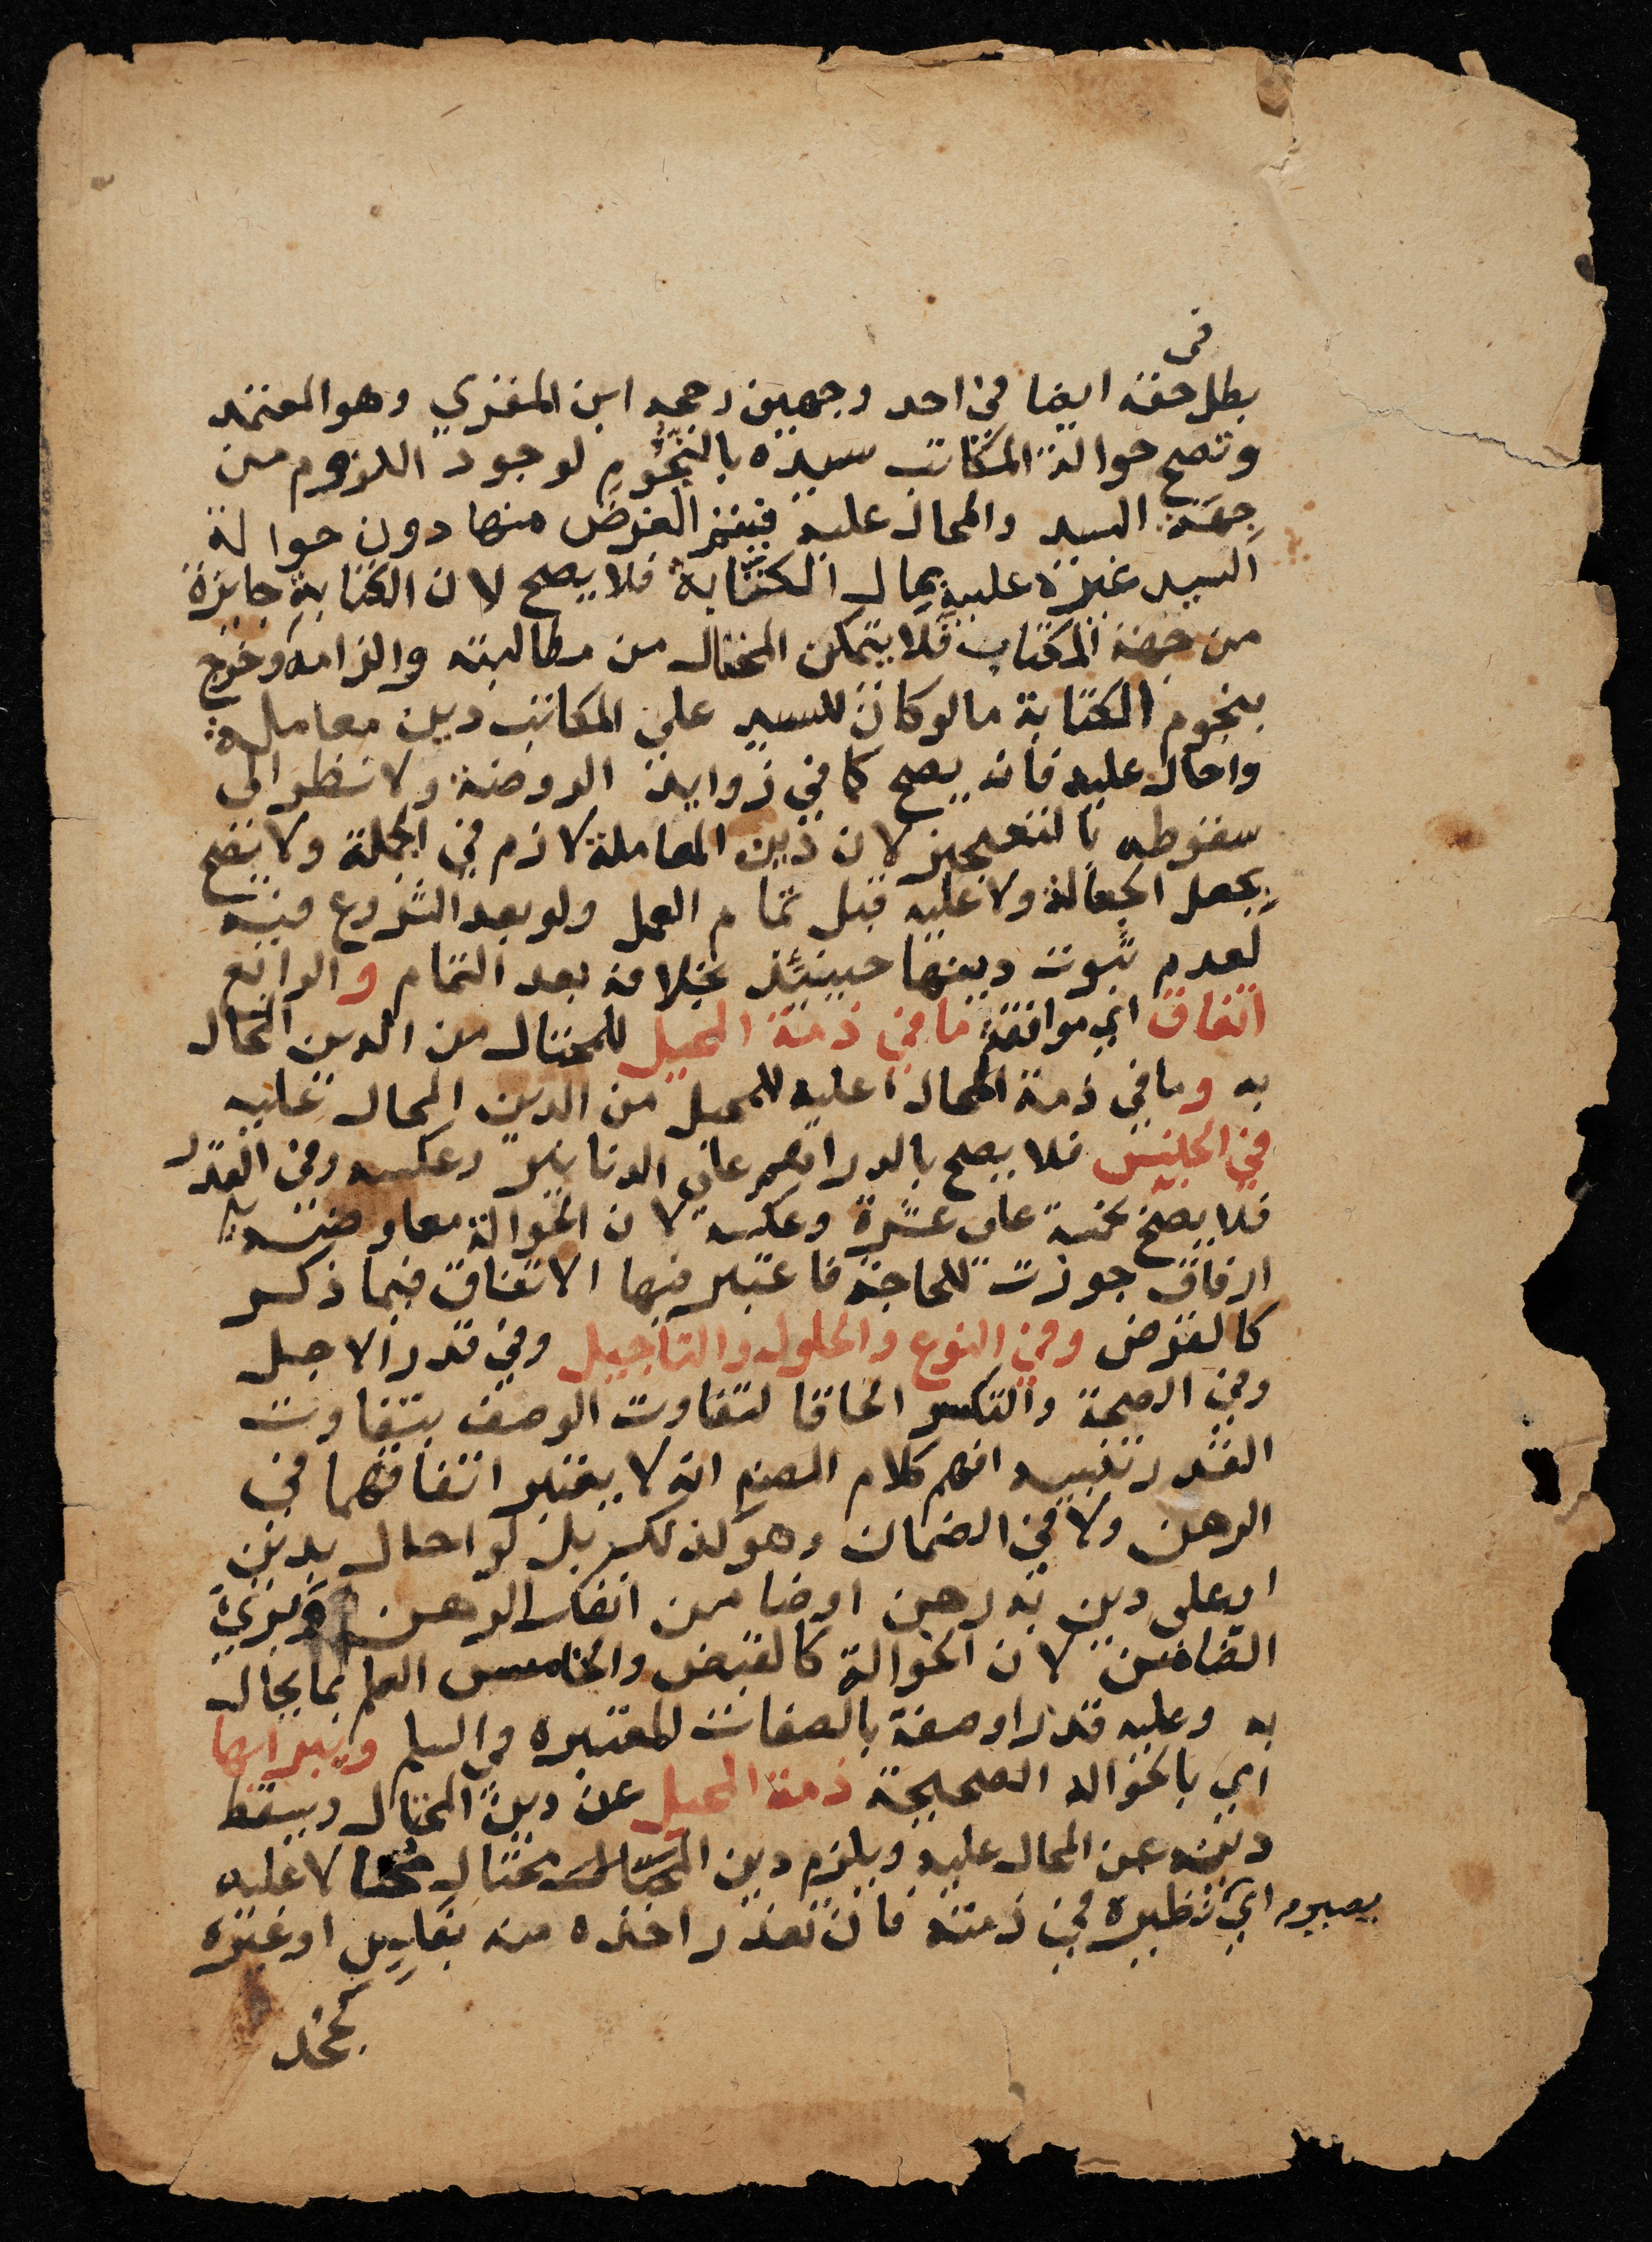 في
بطل حقه ايضا في احد وجهين رجحه ابن المقري وهو المعتمد
وتصح حوالة المكاتب سيده بالنجوم لوجود اللزوم من
جهة السيد والمحال عليه فيتم الغرض منها دون حوالة
السيد غيره عليه بمال الكتابة فلا يصح لان الكتابة جايزة
من جهة المكتاب فلا يتمكن المحتال من مطالبته والزامه وخرج
بنجوم الكتابة ما لو كان للسيد على المكاتب دين معاملة
واحال عليه فانه يصح كما في زوايد الروضة ولا نظر الى
سقوطه بالتعجيز لان دين المعاملة لازم في الجملة ولا يصح
بجعل الجعالة ولا عليه قبل تمام العمل ولو بعد الشروع فيه
لعدم ثبوت دينها حينئذ بخلافه بعد التمام والرابع
اتفاق اي موافقة ما في ذمة المحيل للمحتال من الدين المحال
به وما في ذمة المحال عليه للمحيل من الدين المحال عليه
في الجنس فلا يصح بالدراهم على الدنانير وعكسه وفي القدر
فلا يصح بخمسة على عشرة وعكسه لان الحوالة معاوضة
ارفاق جوزت للحاجة فاعتبر فيها الاتفاق فيما ذكر
كالقرض وفي النوع والحلول والتأجيل وفي قدر الاجل
وفي الصحة والتكسر الحاقا لتفاوت الوصف بتفاوت
القدر تنبيه افهم كلام المصنم انه لا يعتبر اتفاقهما في
الرهن ولا في الضمان وهو كذلك بل لو احال بدين
او على دين به رهن او ضامن انفك الرهن وبرئ
الضامن لان الحوالة كالقبض والخامس العلم بما يحال
به وعليه قدرا وصفة بالصفات المعتبره في السلم ويبرا بها
اي بالحواله الصحيحة ذمة المحيل عن دين المحتال ويسقط
دينه عن المحال عليه ويلزم دين المحتال محتالا عليه
يصير اي نظيره في ذمته فان تعذر اخذه منه بفليس او غيره
كجحد